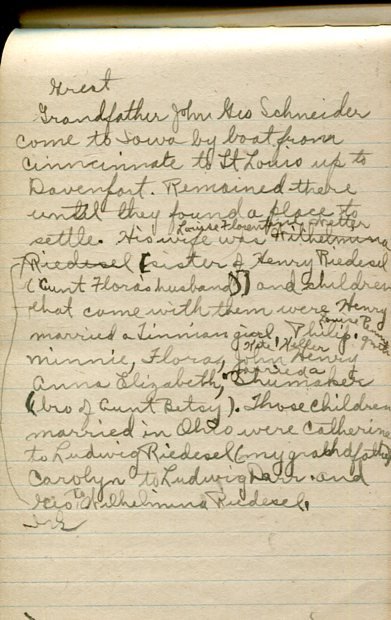 Great
Grandfather John Geo Schneider
come to Iowa by boat from
Cinncinnate to St Louis up to
Davenport. Remained there
until they found a place to
Louise Florentine Vetter
settle. His wife was Wilhelmina
Riedesel [sister of Henry Riedesel
(Aunt Flora's husband)] and children
that came with them were Henry
married a Tinnian girl, Philip.
Kate Keller
Minnie, Flora, John Henry
married a
Anna Elizabeth, Shumaker
(bro of Aunt Betsy). Those children
married in Ohio were Catherine
to Ludwig Riedesel (my grandfather)
Carolyn to Ludwig Darr. and
Geo to Wilhelmina Riedesel.